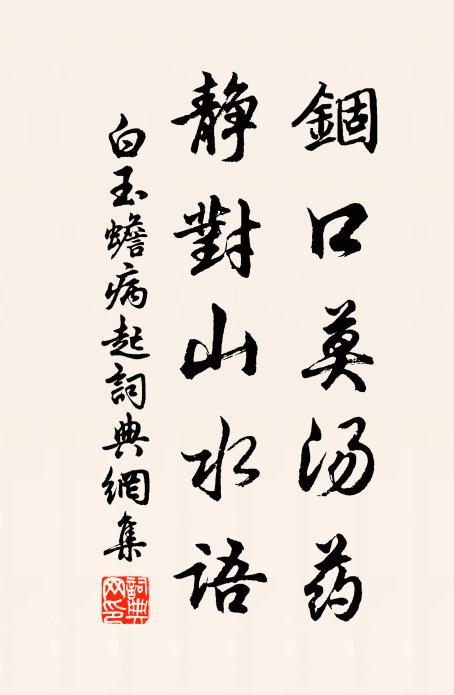 錮口莫汤药
静對山水語
白玉蟾病起詞典網集
詞典网印